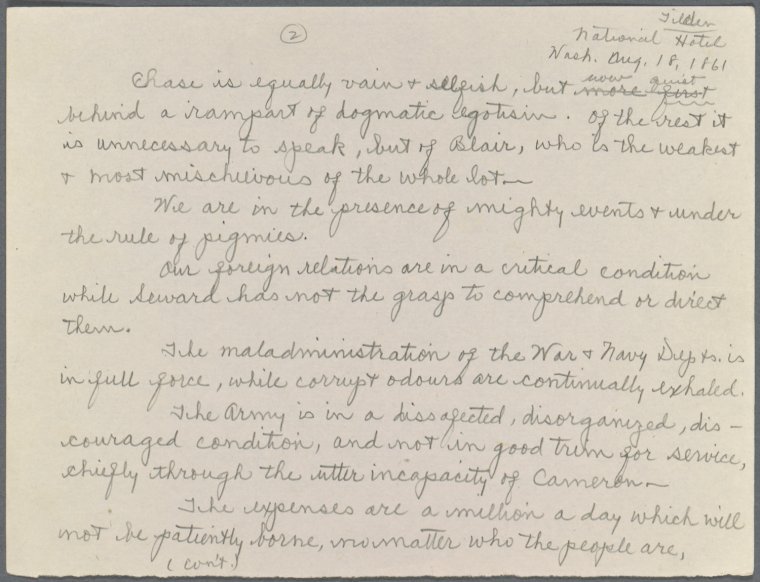 (2)
Tilden
National Hotel
Wash. Aug. 18, 1861
Chase is equally vain & selfish, but more first
now quiet
behind a rampart of dogmatic egotism. Of the rest it
is unnecessary to speak, but of Blair, who is the weakest
& most mischievous of the whole lot—
We are in the presence of mighty events & under
the rule of pigmies.
Our foreign relations are in a critical condition
while Seward has not the grasp to comprehend or direct
them.
The maladministration of the War & Navy Depts. is
in full force, while corrupt odours are continually exhaled.
The Army is in a dissafected, disorganized, dis-
couraged condition, and not in good trim for service,
chiefly through the utter incapacity of Cameron—
The expenses are a million a day which will
not be patiently borne, no matter who the people are,
(con't.)